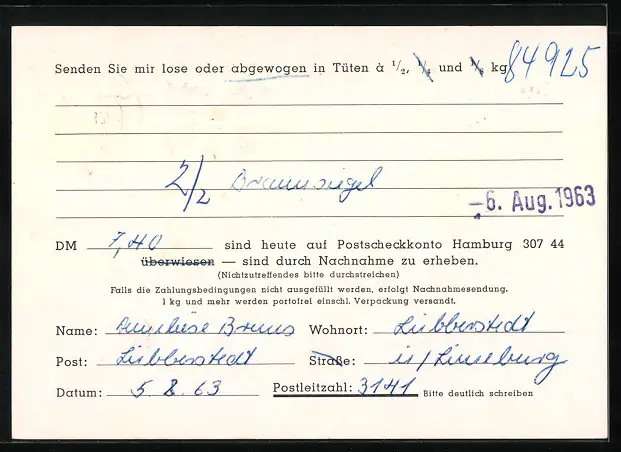 Senden Sie mir lose oder abgewogen in Tüten à 1/2, 1/4 und 1/8 kg 84925
2/2 Braunsiegel
-6. Aug. 1963
DM 7,40 sind heute auf Postscheckkonto Hamburg 307 44
überwiesen — sind durch Nachnahme zu erheben.
(Nichtzutreffendes bitte durchstreichen)
Falls die Zahlungsbedingungen nicht ausgefüllt werden, erfolgt Nachnahmesendung.
1 kg und mehr werden portofrei einschl. Verpackung versandt.
Name: Anneliese Bruns Wohnort: Lübberstedt
Post: Lübberstedt Straße: ü/Lüneburg
Datum: 5. 8. 63 Postleitzahl: 3141 Bitte deutlich schreiben